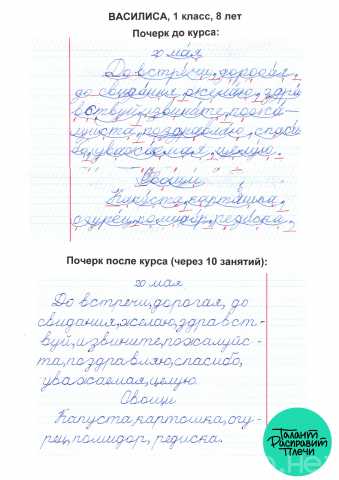 ВАСИЛИСА, 1 класс, 8 лет
Почерк до курса:
20 мая
До встречи, дорогая,
до свидания, желаю, здрав
вствуй, извините, пожа-
луйста, поздравляю, спаси
бо, уважаемая, целую.
Овощи
Капуста, картошка,
огурец, помидор, редиска.
Почерк после курса (через 10 занятий):
20 мая
До встречи, дорогая, до
свидания, желаю, здравст-
вуй, извините, пожалуйс-
та, поздравляю, спасибо,
уважаемая, целую.
Овощи
Капуста, картошка, огу-
рец, помидор, редиска.
Талант
Расправит
Плечи